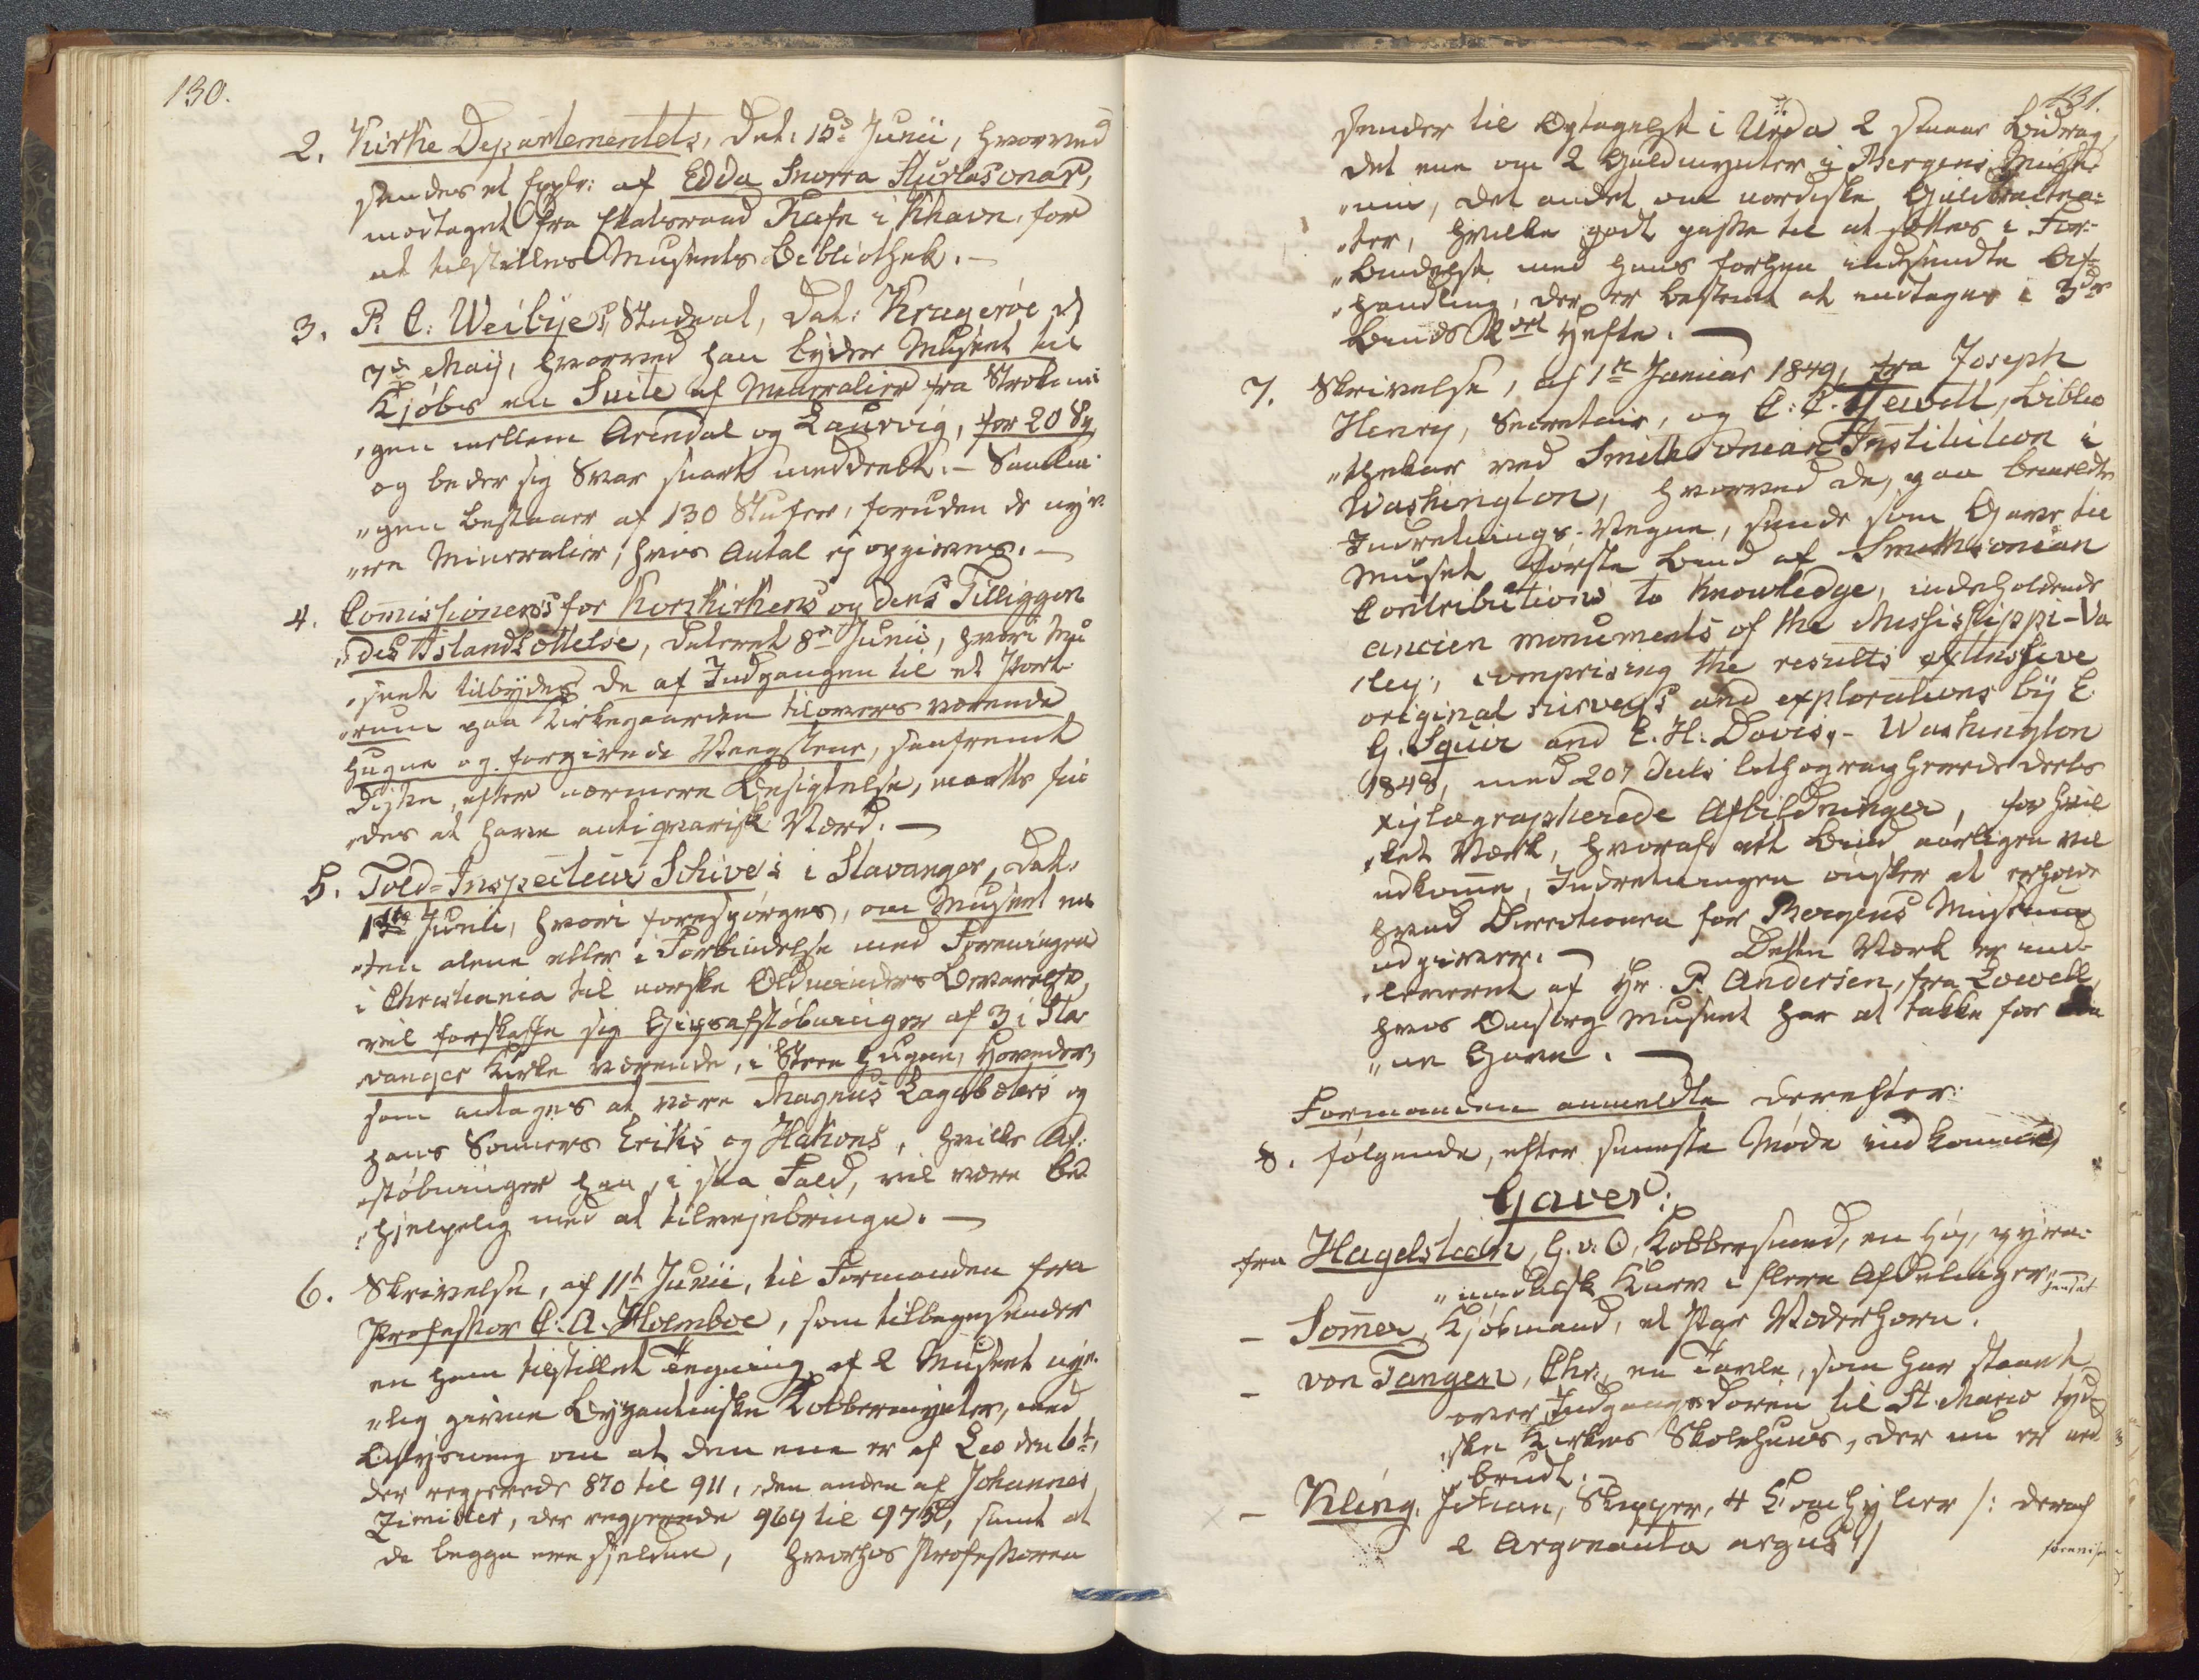 130.
2. Kirke Departementets, dat: 15d Junii, hvorved
sendes et Explr: af Edda Snorra Sturlasonar,
modtaget fra Etatsraad Rafn i Khavn, for
at tilstilles Museets Bibliothek. —
3. P. C. Weibyes, Student, dat: Kragerøe d
7de Maij, hvorved han byder Museet til
Kjøbs en Suite af Mineralier fra Strøknin
„gen mellem Arendal og Laurvig, for 20 Sp
og beder sig Svar snart meddeelt. — Samlin
„gen bestaaer af 130 Stufer, foruden de nye
„re Mineralier, hvis Antal ej opgives. —
4. Comissionens for Korskirkens og dens Tilliggen
„des Istandsættelse, dateret 8de Junii, hvori Mu
„seet tilbydes de af Indgangen til et Port
„rum paa Kirkegaarden tilovers værende
hugne og forgivede Vægstene, saafremt
disse, efter nærmere Besigtelse, maatte fin
„des at have antiqvarisk Værd. —
5. Told-Inspecteur Schive's i Stavanger, dat.
1ste Junii, hvori forespørges, om Museet en
„ten alene eller i Forbindelse med Foreningen
i Christiania til norske Oldminders Bevarelse,
vil forskaffe sig Gipsafstøbninger af 3 i Sta
„vanger Kirke værende, i Steen hugne, Hoveder,
som antages at være Magnus Lagabøters og
hans Sønners Eriks og Hakons, hvilke Af-
„støbninger han, i saa Fald, vil være be-
„hjelpelig med at tilvejebringe. —
6. Skrivelse, af 11te Junii, til Formanden fra
Professor C. A. Holmboe, som tilbagesender
en ham tilstillet Tegning af 2 Museet nye-
„lig givne Byzantinske Kobbermynter, med
Oplysning om at den ene er af Leo den 6te,
der regjerede 870 til 911, den anden af Johannes
Zimisces, der regjerede 969 til 975, samt at
de begge ere sjeldne, hvorhos Professoren
131.
sender til Optagelse i Urda 2 smaae Bidrag,
det ene om 2 Guldmynter i Bergens Muse-
„um, det andet om nordiske Guldbractea-
„ter, hvilke godt passe til at sættes i For-
„bindelse med hans forhen indsendte Af-
„handling, der er bestemt at indtages i 3die
Binds 2det Hefte. —
7. Skrivelse, af 1te Januar 1849, fra Joseph
Henry, Secretair, og C. C. Jewett, Biblio
„thekar ved Smithsonian Institution i
Washington, hvorved de, paa bemeldte
Indretnings Vegne, sende som Gave til
Museet første Bind af Smithsonian
Contributions to Knowledge, indeholdende
ancien monuments of the Missisippi-Va
„ley, comprising the results extensive
original surveys and explorations by E.
G. Squier and E. H. Davis, — Washington
1848, med 207 deels lithographerede deels
xylographerede Afbildninger, for hvil
„ket Værk, hvoraf eet Bind aarligen vil
udkomme, Indretningen ønsker at erholde
hvad Directionen for Bergens Museum
udgiver. — Dette Værk er ind-
„leveret af Hr. P. Andersen, fra Lowell,
hvis Omsorg Museet har at takke for den
„ne Gave. —
Formanden anmeldte derefter:
8. følgende, efter seneste Møde indkomne,
Gaver:
fra Hagelsteen, G. v. O, Kobbersmed, en høj, pyra-
„midalsk Kurv i flere Afdelinger.
— Sommer, Kjøbmand, et Par Væderhorn.
— von Tangen, Chr., en Tavle, som har staaet
over Indgangsdøren til St. Mariæ tyd
„ske Kirkes Skolehuus, der nu er ned
„brudt. —
— Kling, Johan, Skipper, 4 Conchylier /: deraf
2 Argonauta argus :/